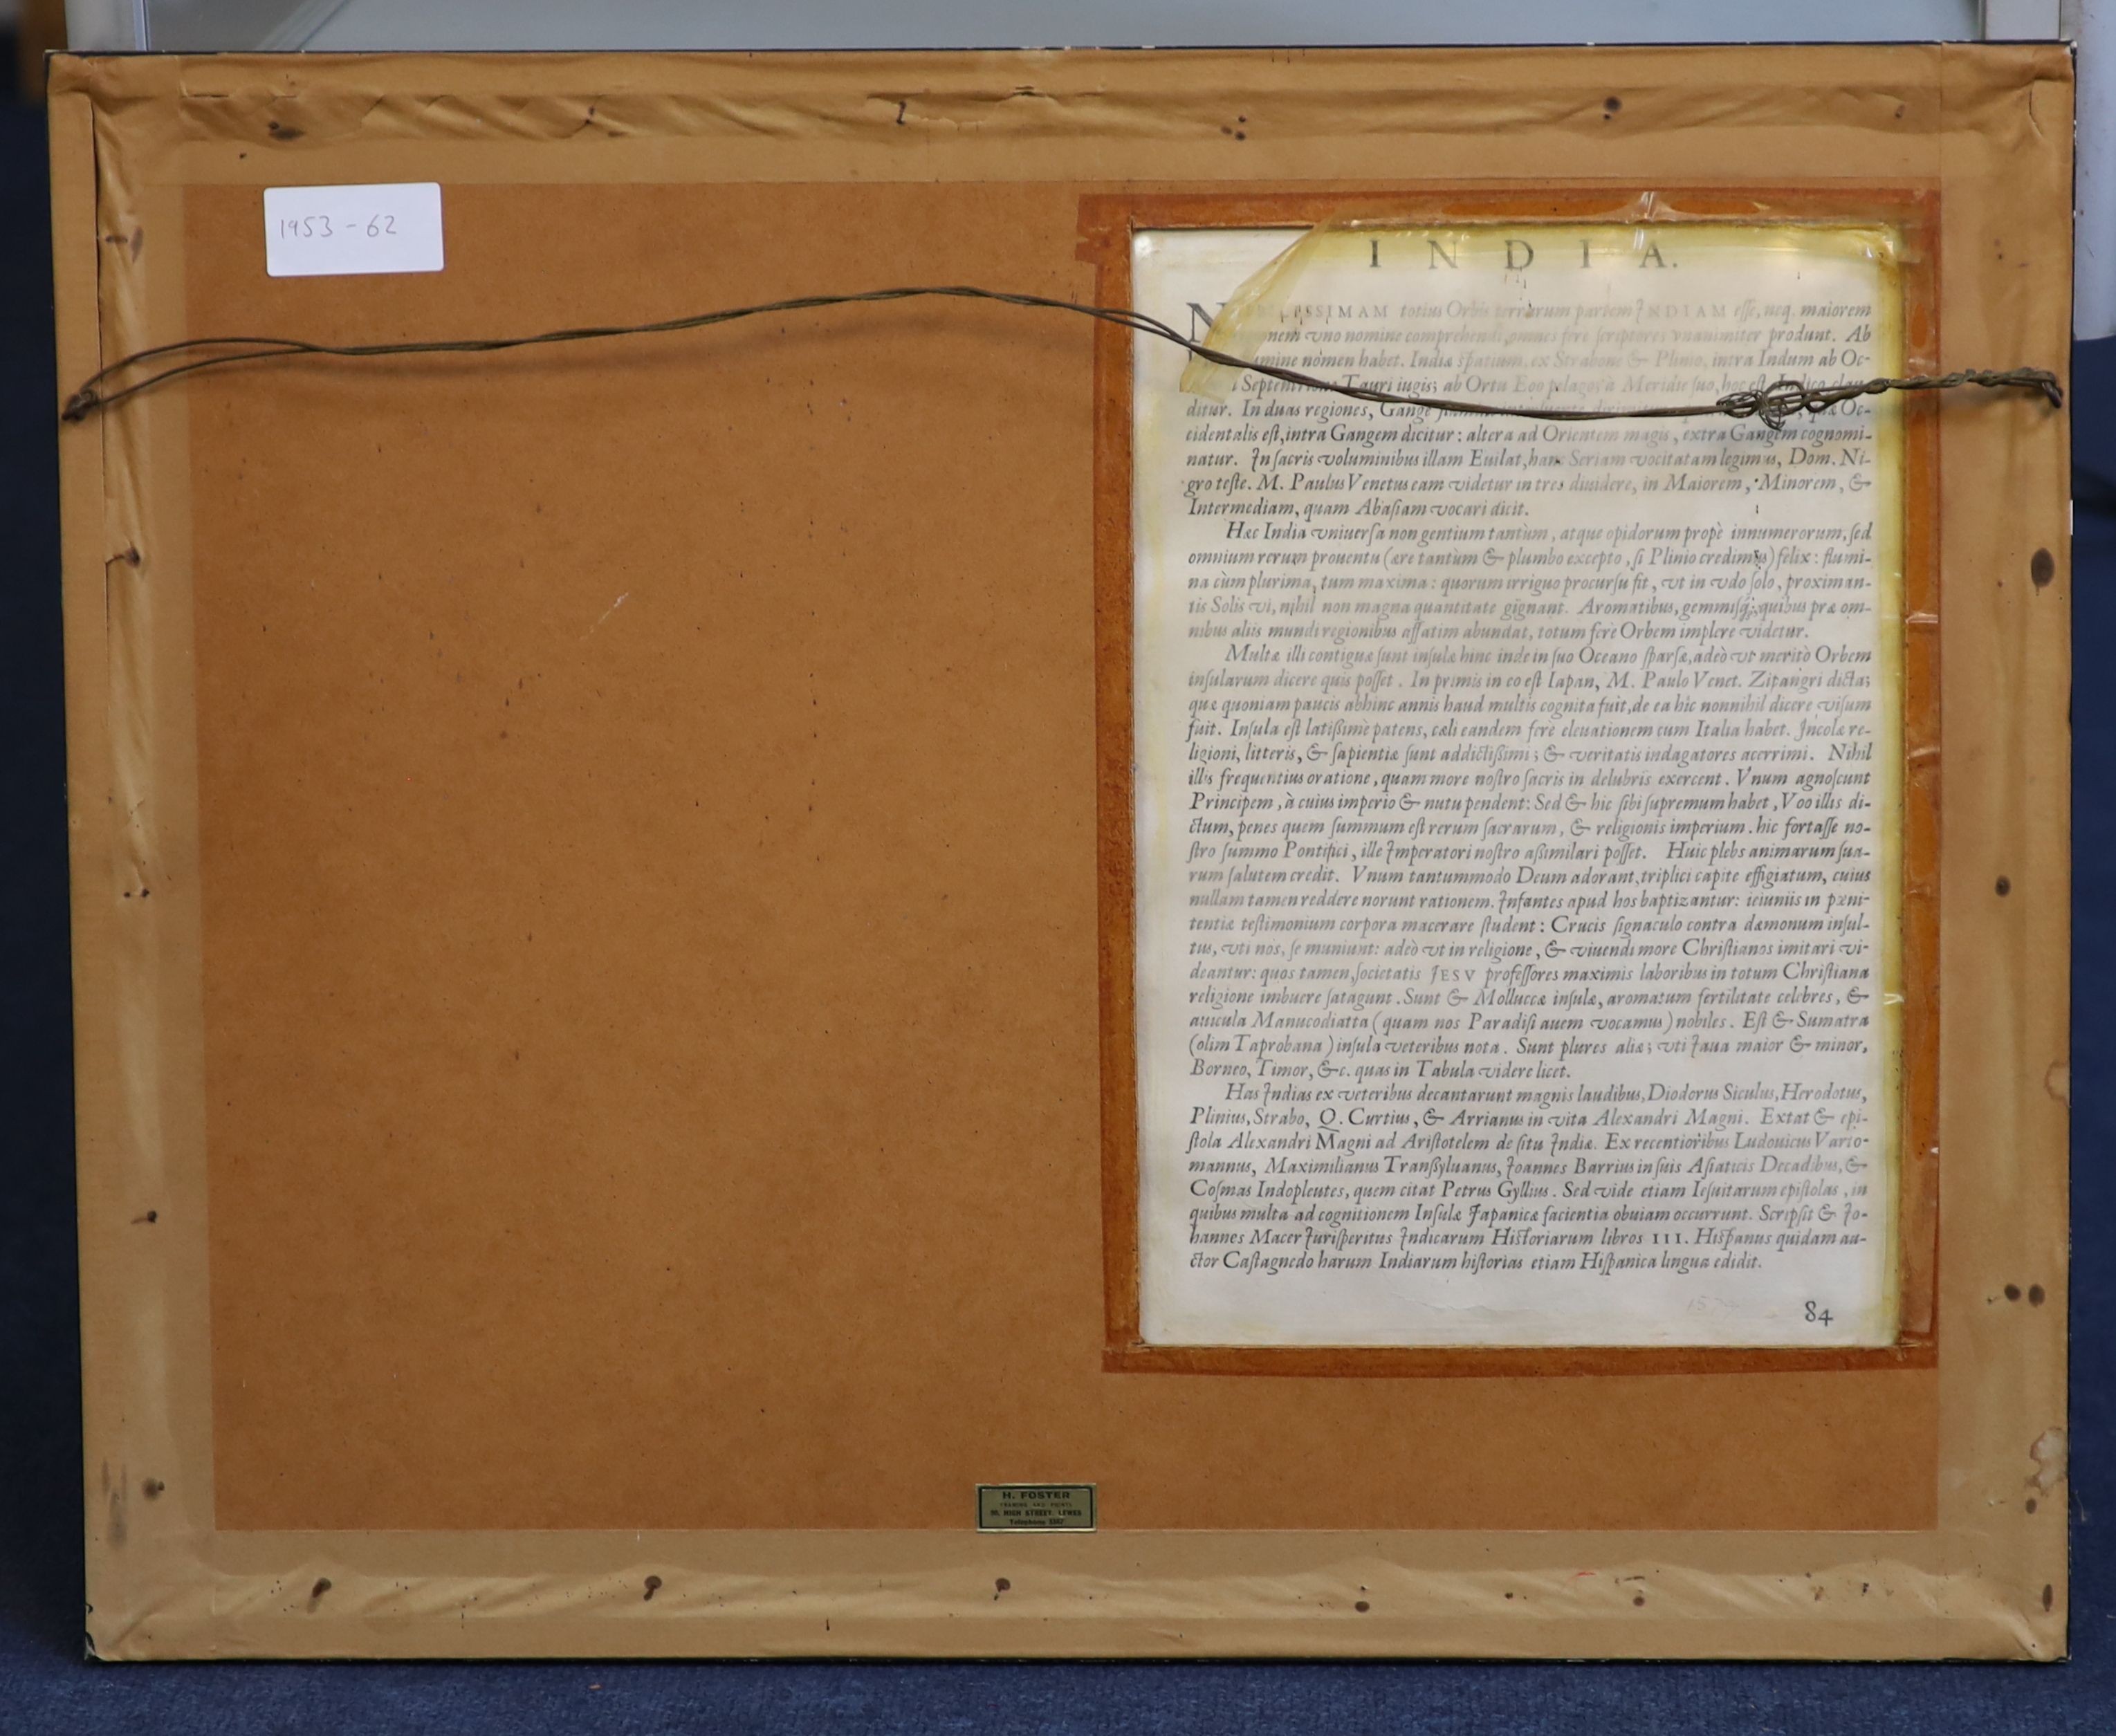 1953 - 62
INDIA.
totius Orbis terrarum partem INDIAM esse, neq. maiorem
vno nomine comprehendi, omnes ferè scriptores vnanimiter produnt. Ab
nomen habet. Indiæ spatium, ex Strabone & Plinio, intra Indum ab Oc-
Tauri iugis; ab Ortu Eoo pelago; à Meridie suo, hoc est, Indico clau-
ditur. In duas regiones, Gange Oc-
cidentalis est, intra Gangem dicitur: altera ad Orientem magis, extra Gangem cognomi-
natur. In sacris voluminibus illam Euilat, hanc Seriam vocitatam legimus, Dom. Ni-
gro teste. M. Paulus Venetus eam videtur in tres diuidere, in Maiorem, Minorem, &
Intermediam, quam Abasiam vocari dicit.
Hæc India vniuersa non gentium tantùm, atque opidorum propè innumerorum, sed
omnium rerum prouentu (ære tantùm & plumbo excepto, si Plinio credimus) felix: flumi-
na cùm plurima, tum maxima: quorum irriguo procursu fit, vt in vdo solo, proximan-
tis Solis vi, nihil non magna quantitate gignant. Aromatibus, gemmisq;, quibus præ om-
nibus aliis mundi regionibus affatim abundat, totum ferè Orbem implere videtur.
Multæ illi contiguæ sunt insulæ hinc inde in suo Oceano sparsæ, adeò vt meritò Orbem
insularum dicere quis posset. In primis in eo est Iapan, M. Paulo Venet. Zipangri dicta;
quæ quoniam paucis abhinc annis haud multis cognita fuit, de ea hic nonnihil dicere visum
fuit. Insula est latißimè patens, cæli eandem ferè eleuationem cum Italia habet. Incolæ re-
ligioni, litteris, & sapientiæ sunt addictißimi; & veritatis indagatores acerrimi. Nihil
illis frequentius oratione, quam more nostro sacris in delubris exercent. Vnum agnoscunt
Principem, à cuius imperio & nutu pendent: Sed & hic sibi supremum habet, Voo illis di-
ctum, penes quem summum est rerum sacrarum, & religionis imperium. hic fortasse no-
stro summo Pontifici, ille Imperatori nostro aßimilari posset. Huic plebs animarum sua-
rum salutem credit. Vnum tantummodo Deum adorant, triplici capite effigiatum, cuius
nullam tamen reddere norunt rationem. Infantes apud hos baptizantur: ieiuniis in pœni-
tentiæ testimonium corpora macerare student: Crucis signaculo contra dæmonum insul-
tus, vti nos, se muniunt: adeò vt in religione, & viuendi more Christianos imitari vi-
deantur: quos tamen, societatis IESV professores maximis laboribus in totum Christiana
religione imbuere satagunt. Sunt & Molluccæ insulæ, aromatum fertilitate celebres, &
auicula Manucodiatta (quam nos Paradisi auem vocamus) nobiles. Est & Sumatra
(olim Taprobana) insula veteribus nota. Sunt plures aliæ; vti Iaua maior & minor,
Borneo, Timor, &c. quas in Tabula videre licet.
Has Indias ex veteribus decantarunt magnis laudibus, Diodorus Siculus, Herodotus,
Plinius, Strabo, Q. Curtius, & Arrianus in vita Alexandri Magni. Extat & epi-
stola Alexandri Magni ad Aristotelem de situ Indiæ. Ex recentioribus Ludouicus Varto-
mannus, Maximilianus Transsyluanus, Ioannes Barrius in suis Asiaticis Decadibus, &
Cosmas Indopleutes, quem citat Petrus Gyllius. Sed vide etiam Iesuitarum epistolas, in
quibus multa ad cognitionem Insulæ Iapanicæ facientia obuiam occurrunt. Scripsit & Io-
hannes Macer Iurisperitus Indicarum Historiarum libros III. Hispanus quidam au-
ctor Castagnedo harum Indiarum historias etiam Hispanica lingua edidit.
84
H. FOSTER
FRAMING AND PRINTS
HIGH STREET. LEWES
Telephone